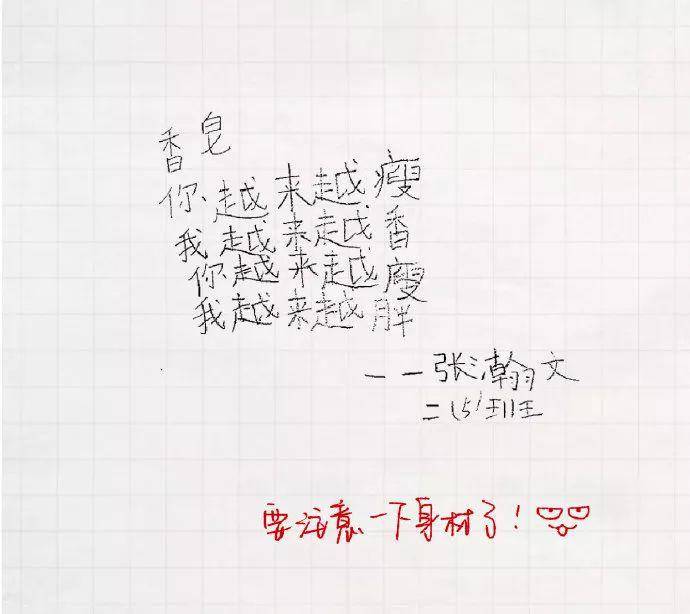 香皂
你越来越瘦
我越来越香
你越来越瘦
我越来越胖
——张瀚文
二(5)班
要注意一下身材了!